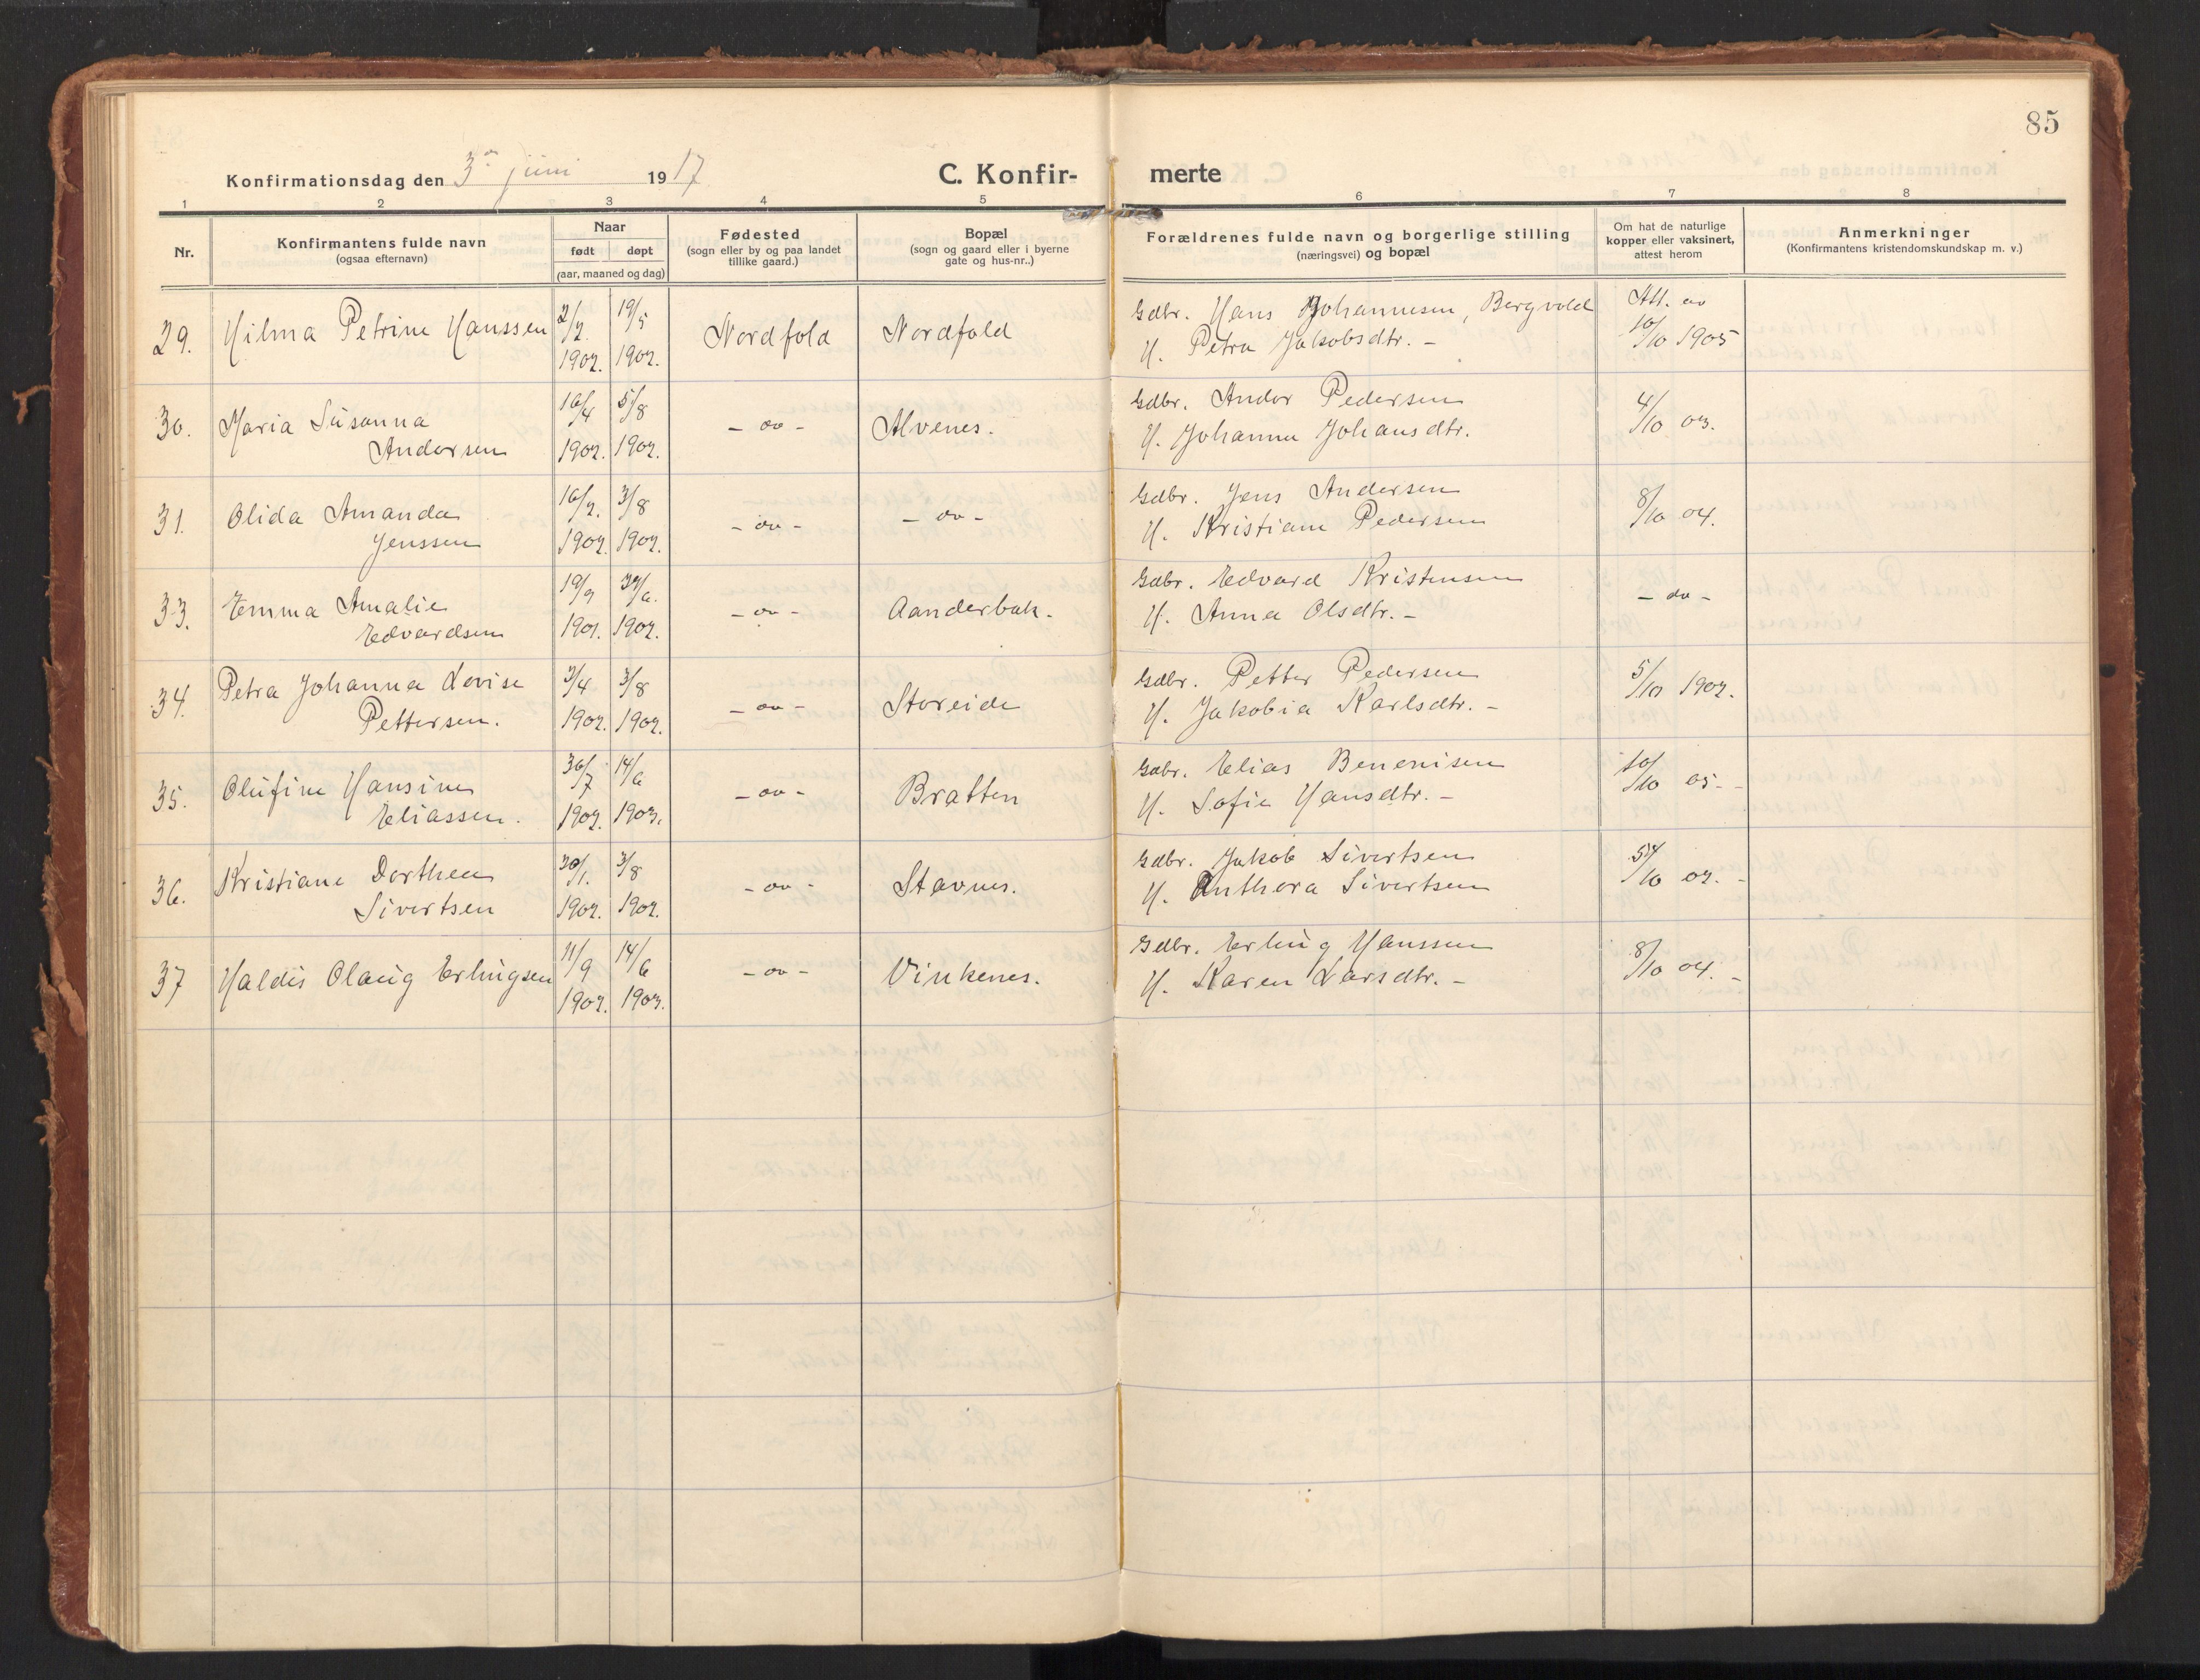 85
Konfirmationsdag den 3de juni 1917
C. Konfir-
merte
1 2 3 4 5 6 7 8
Nr.
Konfirmantens fulde navn
(ogsaa efternavn)
Naar
født døpt
(aar, maaned og dag)
Fødested
(sogn eller by og paa landet
tillike gaard.)
Bopæl
(sogn og gaard eller i byerne
gate og hus-nr..)
Forældrenes fulde navn og borgerlige stilling
(næringsvei) og bopæl
Om hat de naturlige
kopper eller vaksinert,
attest herom
Anmerkninger
(Konfirmantens kristendomskundskap m. v.)
29. Hilma Petrine Hanssen 2/2. 1902. 19/5 1902. Nordfold Nordfold Gdbr. Hans Johannesen, Bergvold Att. av
H. Petra Jakobsdtr. - 10/10 1905
30. Maria Susanna 16/4 5/8 - do - Alvenes. Gdbr. Andor Pedersen 4/10 03.
Andorsen 1902. 1902. H. Johanna Johansdtr.
31. Olida Amanda 16/2. 3/8 - do - - do - Gdbr. Jens Andersen 8/10 04.
Jenssen 1902. 1902. H. Kristiane Pedersen
33. Emma Amalie 19/9 - do - Aanderbak. Gdbr. Edvard Kristensen - do -
Edvardsen 1901. 1902. H. Anna Olsdtr. -
34. Petra Johanna Lovise 3/8 - do - Storeide Gdbr. Petter Pedersen 5/10 1902.
Pettersen. 1902. 1902. H. Jakobia Karlsdtr. -
35. Olufine Hansine 30/7 14/6 - do - Bratten Gdbr. Elias Benonisen 10/10 05. -
Eliassen. 1902. 1903. H. Sofie Hansdtr. -
36. Kristiane Dorthea 30/1. 3/8 - do - Stavnes. Gdbr. Jakob Sivertsen 5/10 02. -
Sivertsen 1902. 1902. H. Anthora Sivertsen
37 Haldis Olaug Erlingsen 11/9 1902. 14/6 1903. - do - Vinkenes. Gdbr. Erling Hanssen 8/10 04. -
H. Karen Larsdtr. -